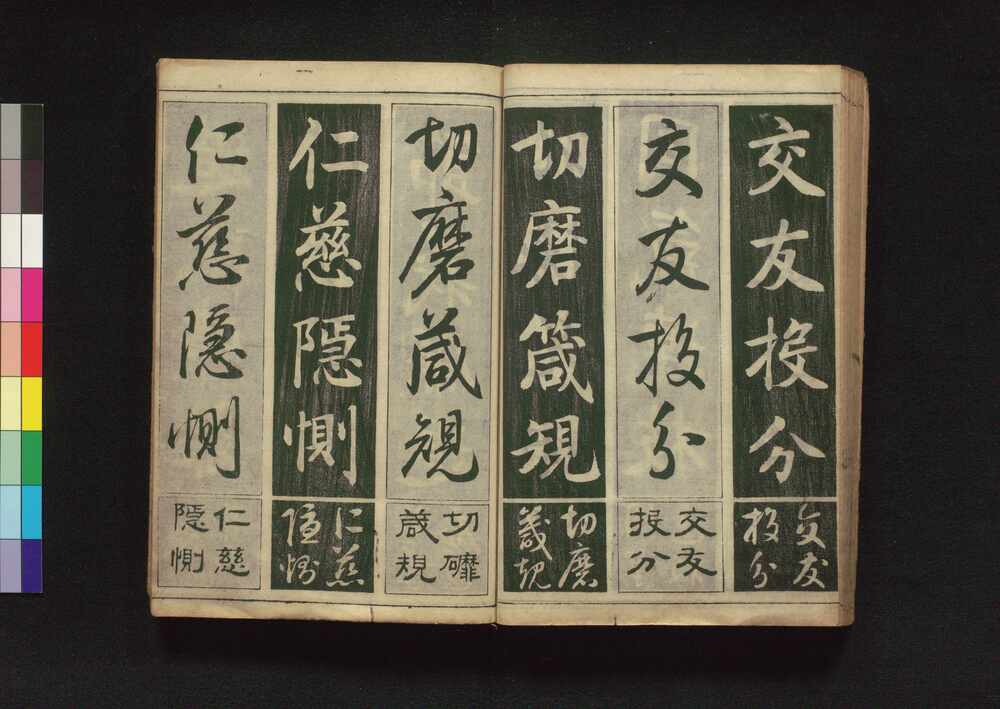 交友投分
交友
投分
交友投分
交友
投分
切磨箴規
切磨
箴規
切磨葴規
切磿
葴規
仁慈隠惻
仁慈
隠惻
仁慈隠惻
仁慈
隠惻